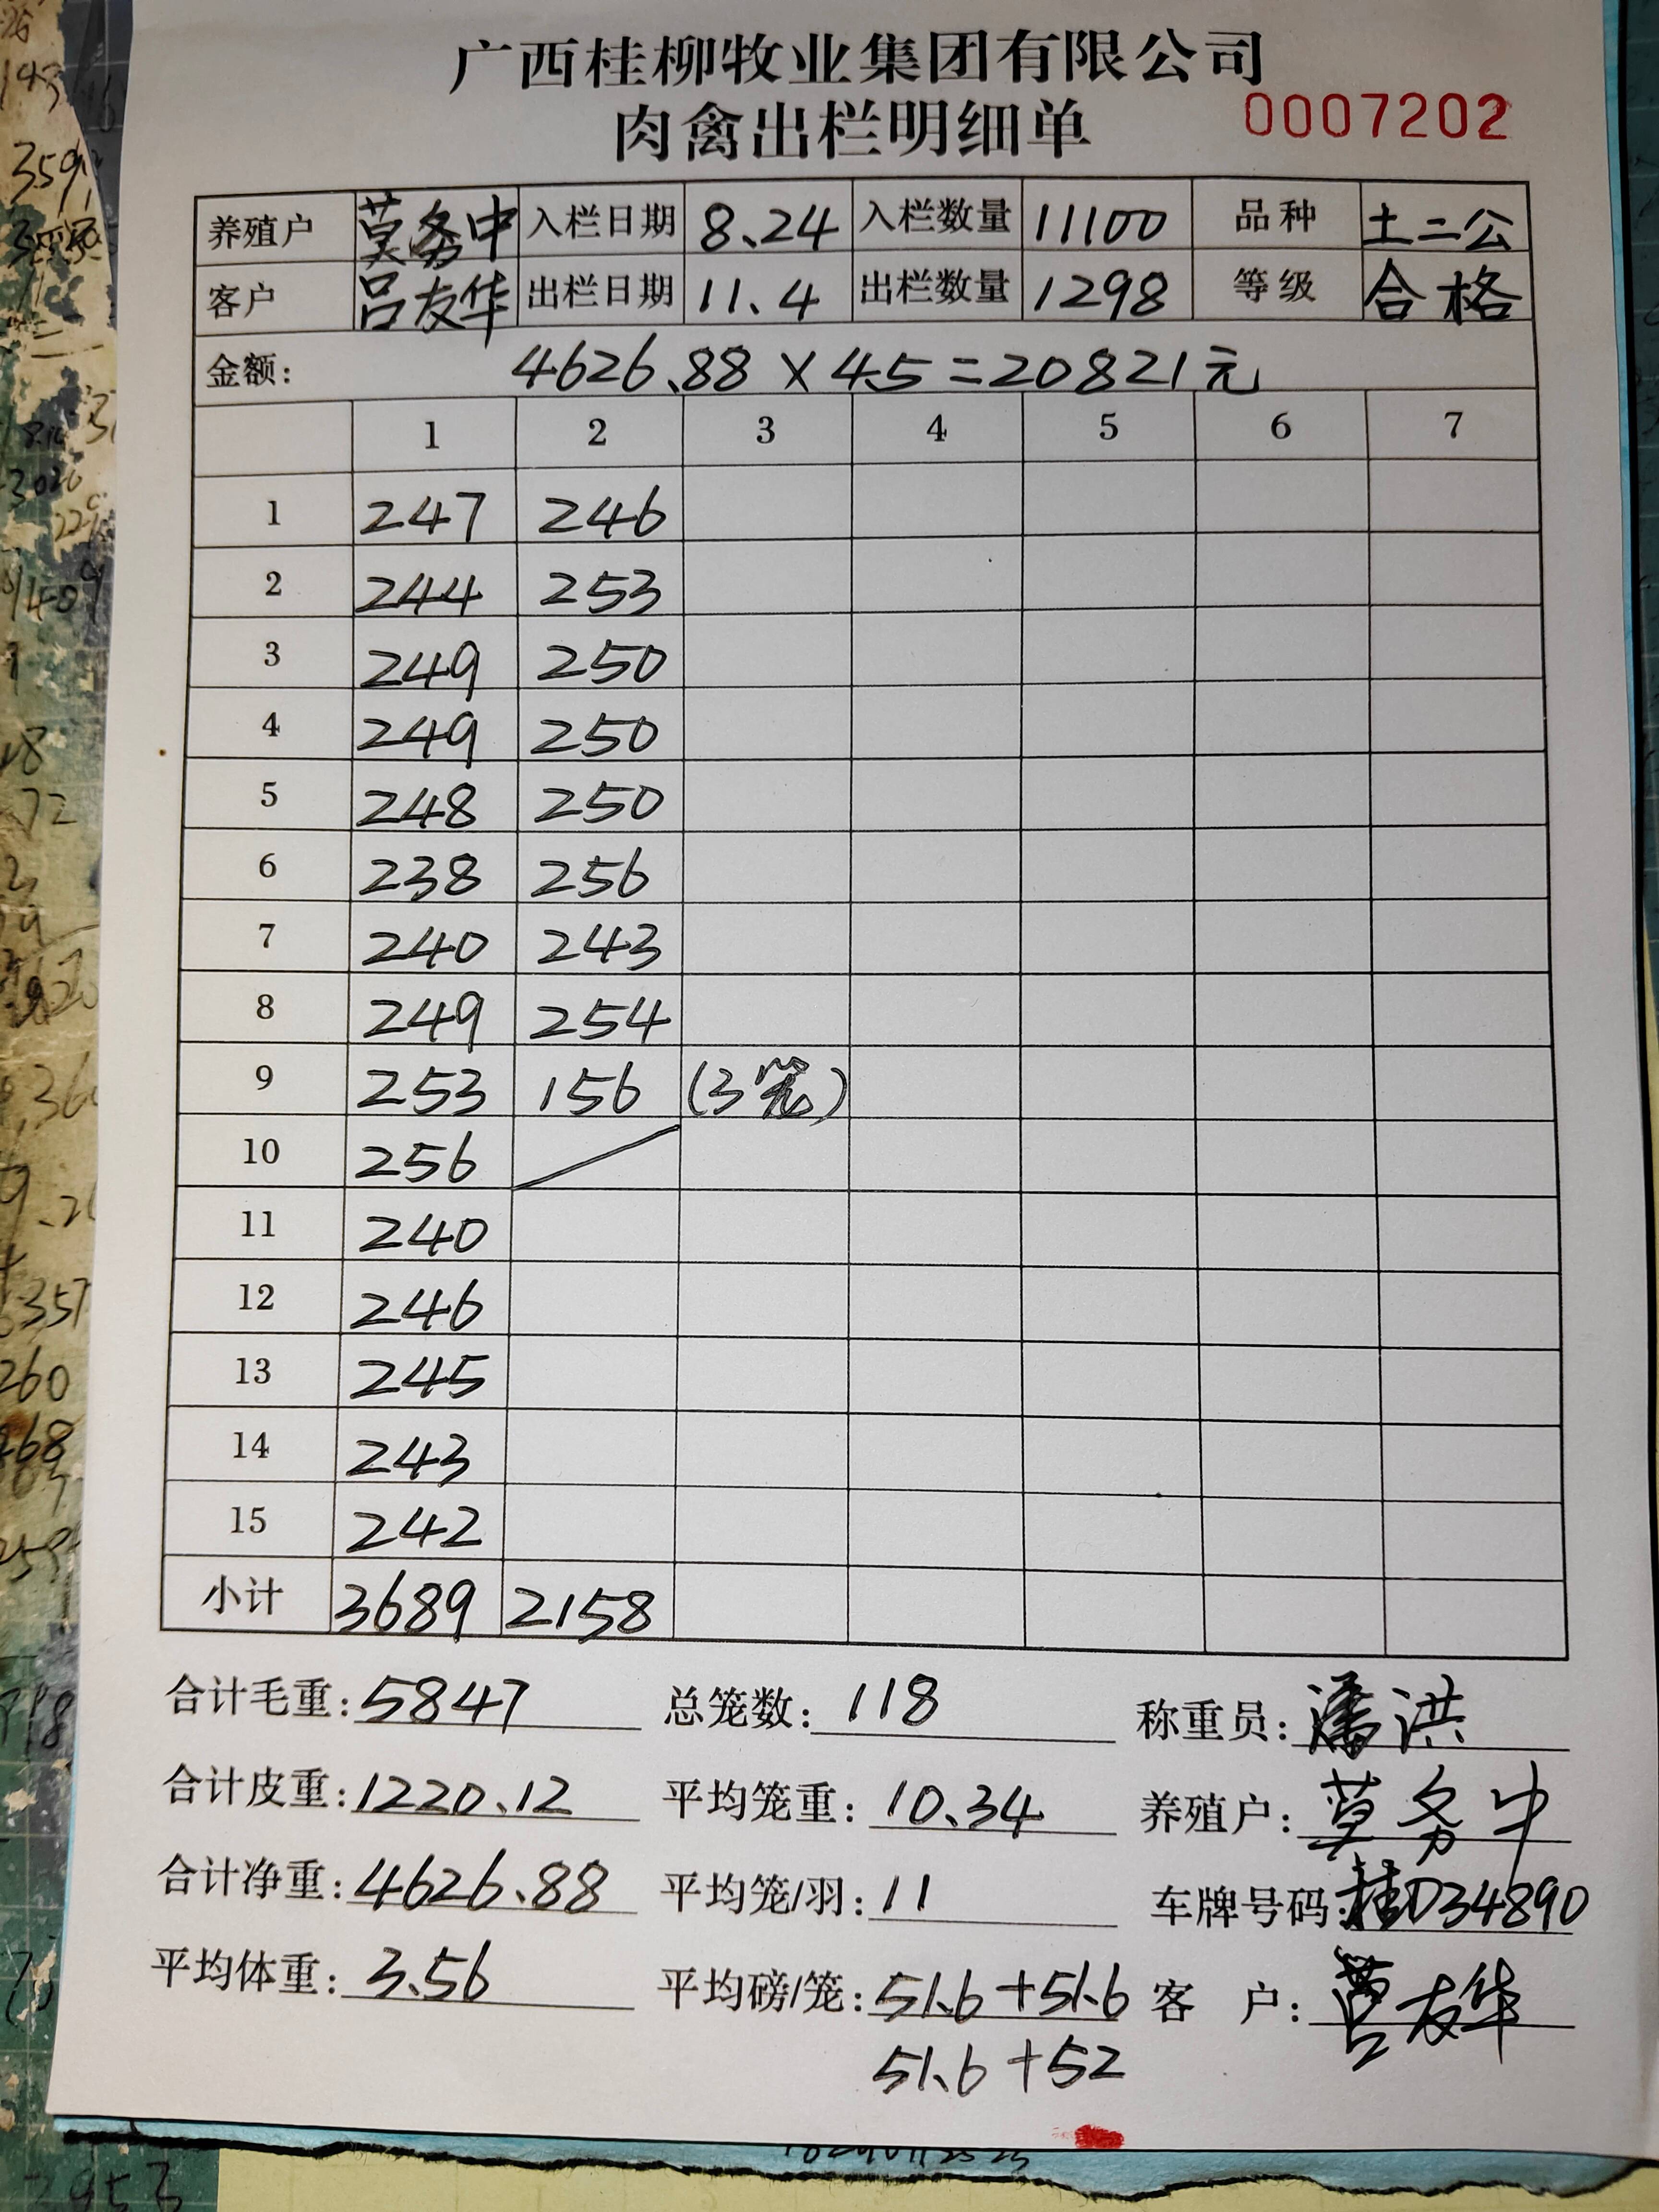 广西桂柳牧业集团有限公司
肉禽出栏明细单 0007202
养殖户 莫务中 入栏日期 8.24 入栏数量 11100 品种 土二公
客户 吕友华 出栏日期 11.4 出栏数量 1298 等级 合格
金额: 4626.88×4.5=20821元
1 2 3 4 5 6 7
1 247 246
2 244 253
3 249 250
4 249 250
5 248 250
6 238 256
7 240 243
8 249 254
9 253 156 (3笼)
10 256
11 240
12 246
13 245
14 243
15 242
小计 3689 2158
合计毛重: 5847 总笼数: 118 称重员: 潘洪
合计皮重: 1220.12 平均笼重: 10.34 养殖户: 莫务中
合计净重: 4626.88 平均笼/羽: 11 车牌号码: 桂D34890
平均体重: 3.56 平均磅/笼: 51.6+51.6 客 户: 吕友华
51.6+52